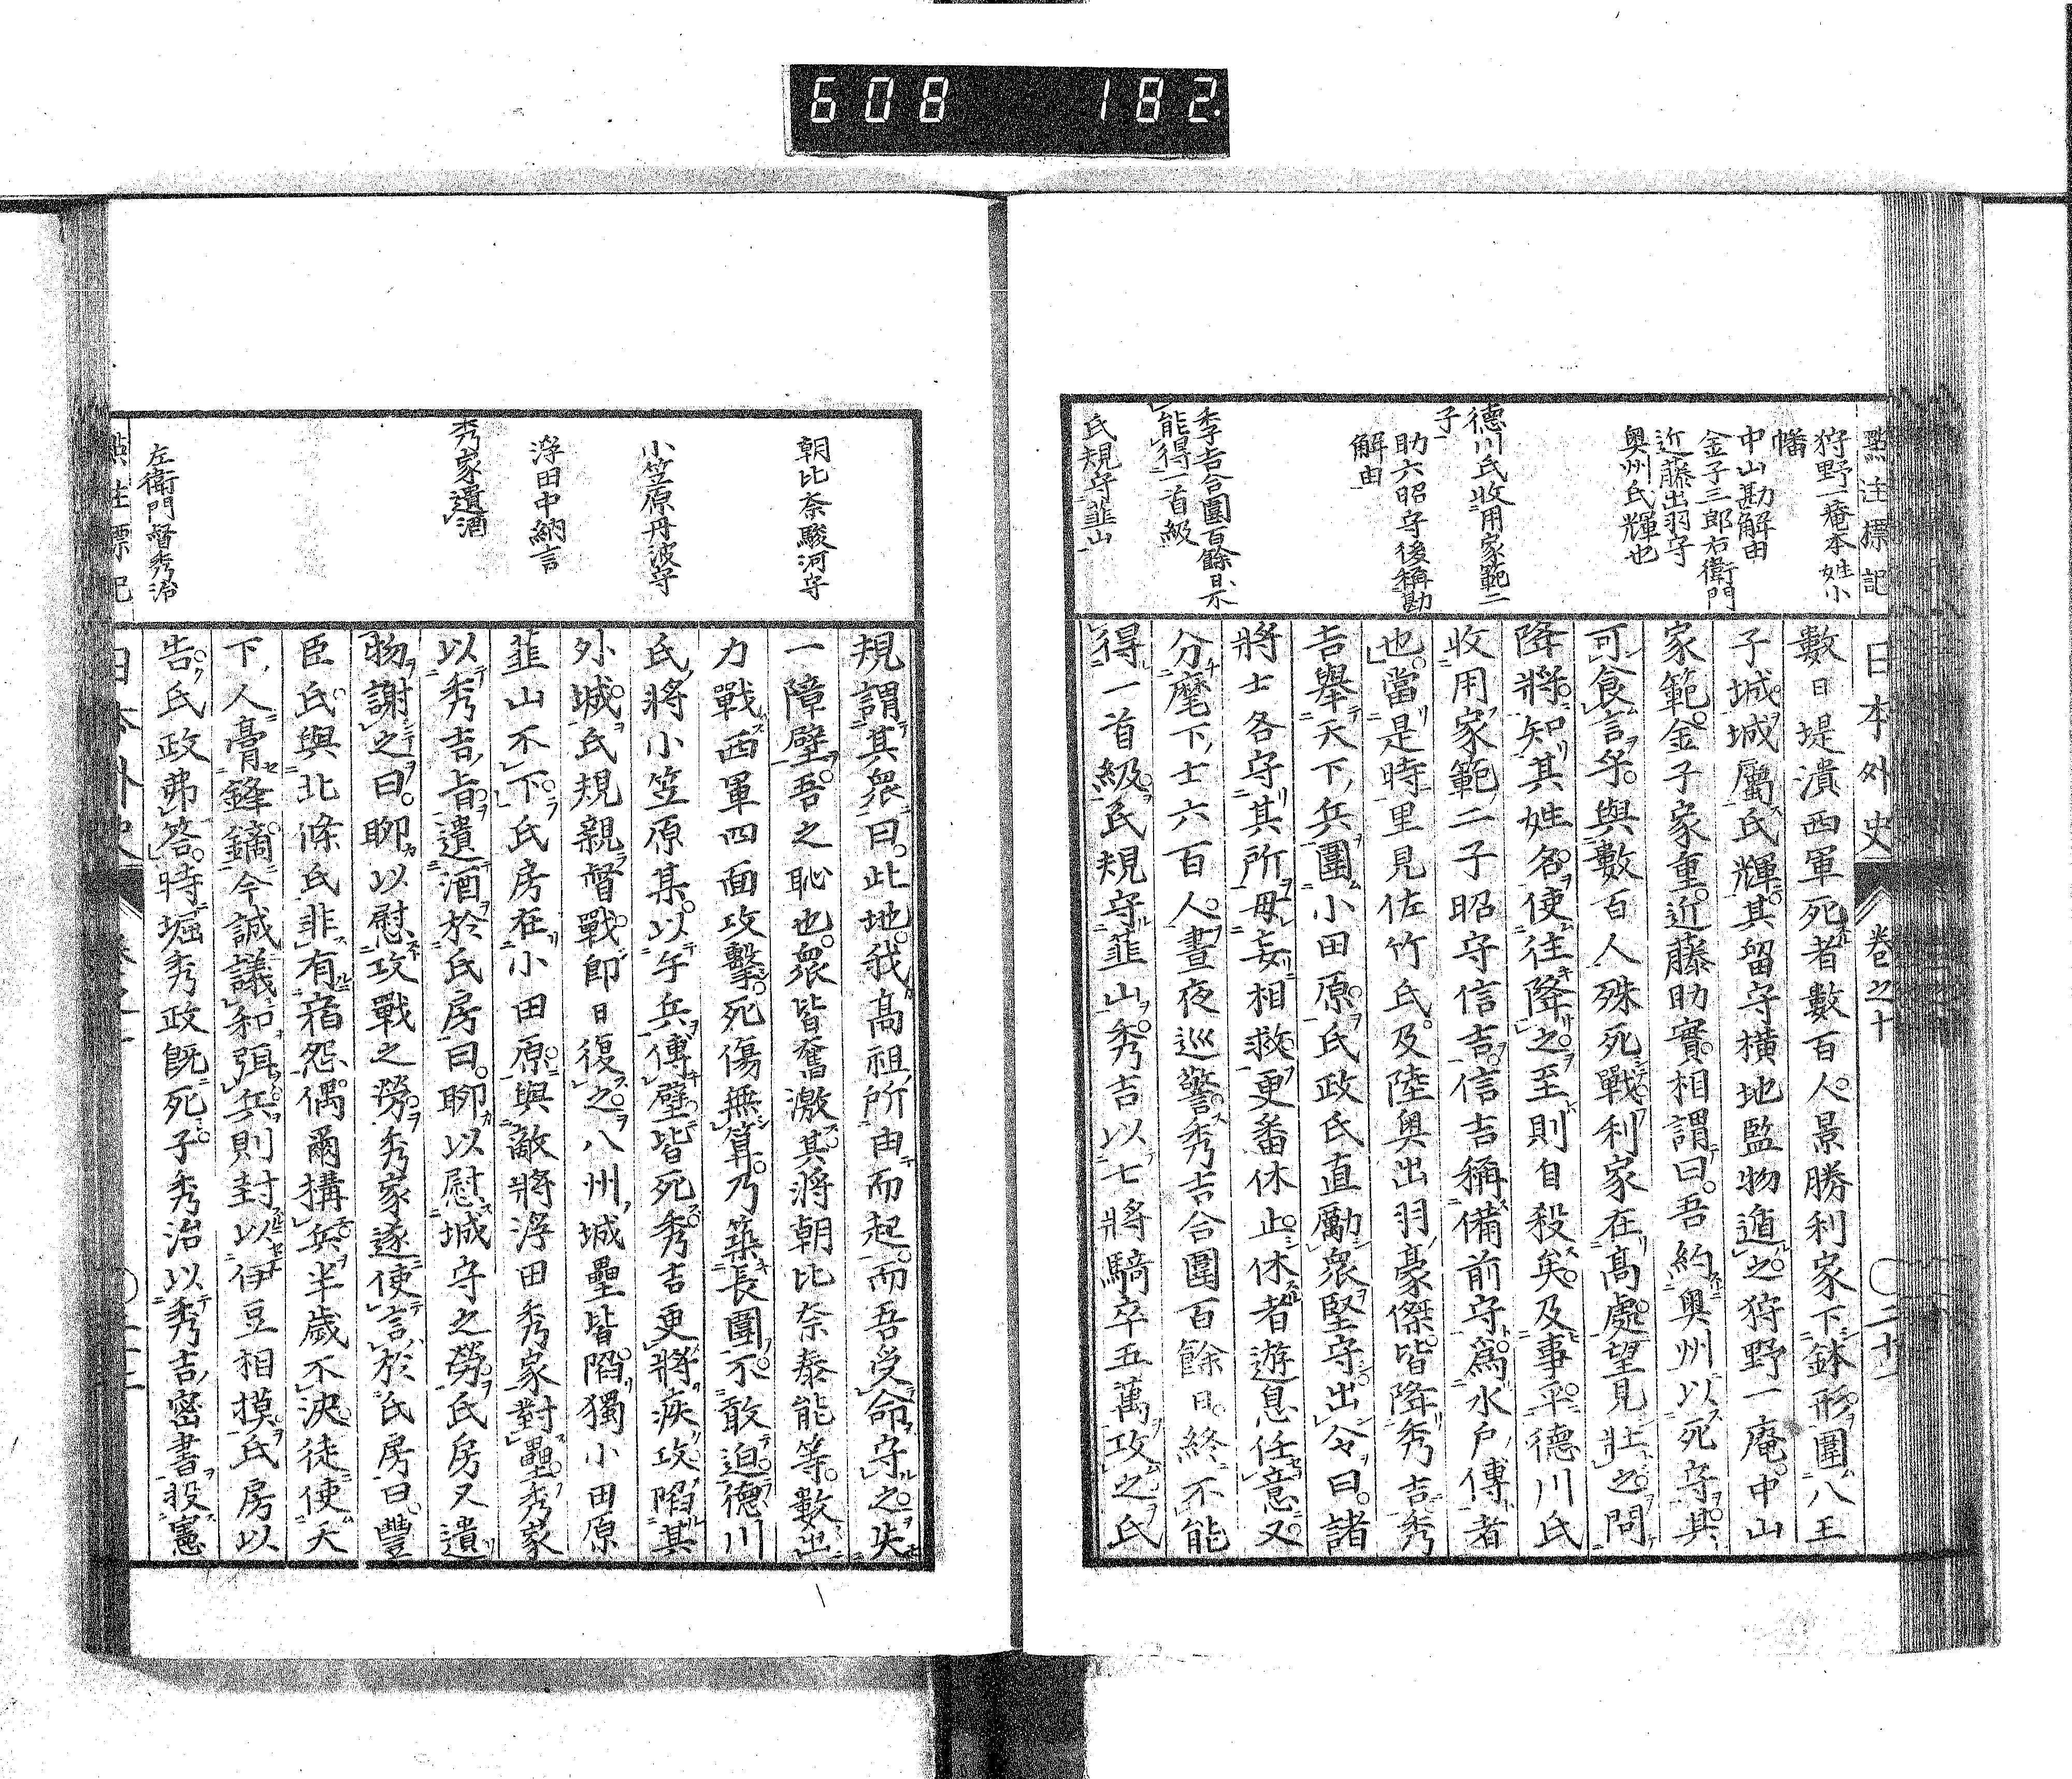 608 182.
點注標記
日本外史
卷之十
二十一
狩野一庵本姓小
幡
中山勘解由
金子三郎右衛門
近藤出羽守
奧州氏輝也
德川氏收用家範二
子
助六昭守後稱勘
解由
秀吉合圍百餘日不
能得一首級
氏規守韮山
數日堤潰西軍死者數百人。景勝利家下鉢形。圍八王
子城。城屬氏輝。其留守橫地監物遁之。狩野一庵。中山
家範。金子家重。近藤助實。相謂曰。吾約奧州以死守。其
可食言乎。與數百人殊死戰。利家在高處望見壯之。問
降將。知其姓名。使往降之。至則自殺矣。及事平。德川氏
收用家範二子昭守信吉。信吉稱備前守。爲水戶傅者
也。當是時。里見佐竹氏。及陸奧出羽豪傑。皆降秀吉。秀
吉舉天下兵。圍小田原。氏政氏直勵衆堅守。出令曰。諸
將士各守其所。毋妄相救。更番休止。休者遊息任意。又
分麾下士六百人。晝夜巡警。秀吉合圍百餘日。終不能
得一首級。氏規守韮山。秀吉以七將騎卒五萬攻之。氏
朝比奈駿河守
小笠原丹波守
浮田中納言
秀家遺酒
左衛門督秀治
規謂其衆曰。此地。我高祖所由而起。而吾受命守之。失
一障壁。吾之恥也。衆皆奮激。其將朝比奈泰能等。數出
力戰。西軍四面攻擊。死傷無算。乃築長圍。不敢迫。德川
氏將小笠原某。以手兵傅壁。皆死。秀吉更將疾攻。陷其
外城。氏規親督戰。卽日復之。八州城壘皆陷。獨小田原
韮山不下。氏房在小田原。與敵將浮田秀家對壘。秀家
以秀吉旨。遺酒於氏房曰。聊以慰城守之勞。氏房又遺
物謝之曰。聊以慰攻戰之勞。秀家遂使言於氏房曰。豐
臣氏與北條氏。非有宿怨。偶爾搆兵。半歲不決。徒使天
下人膏鋒鏑。今誠議和弭兵。則封以伊豆相摸。氏房以
告氏政。弗答。時堀秀政旣死。子秀治以秀吉密書投憲